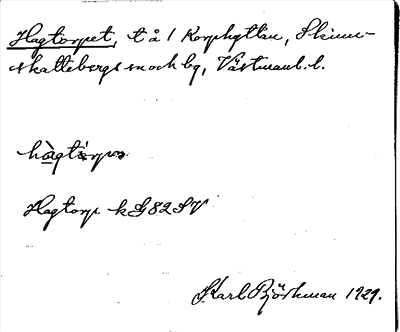 Hagtorpet, t å 1 Korphyttan, Skinn-
skattebergs sn och bg, Västmanl. l.
hàgtòrps
Hagtorp k G 82 SV
Karl Björkman 1929.